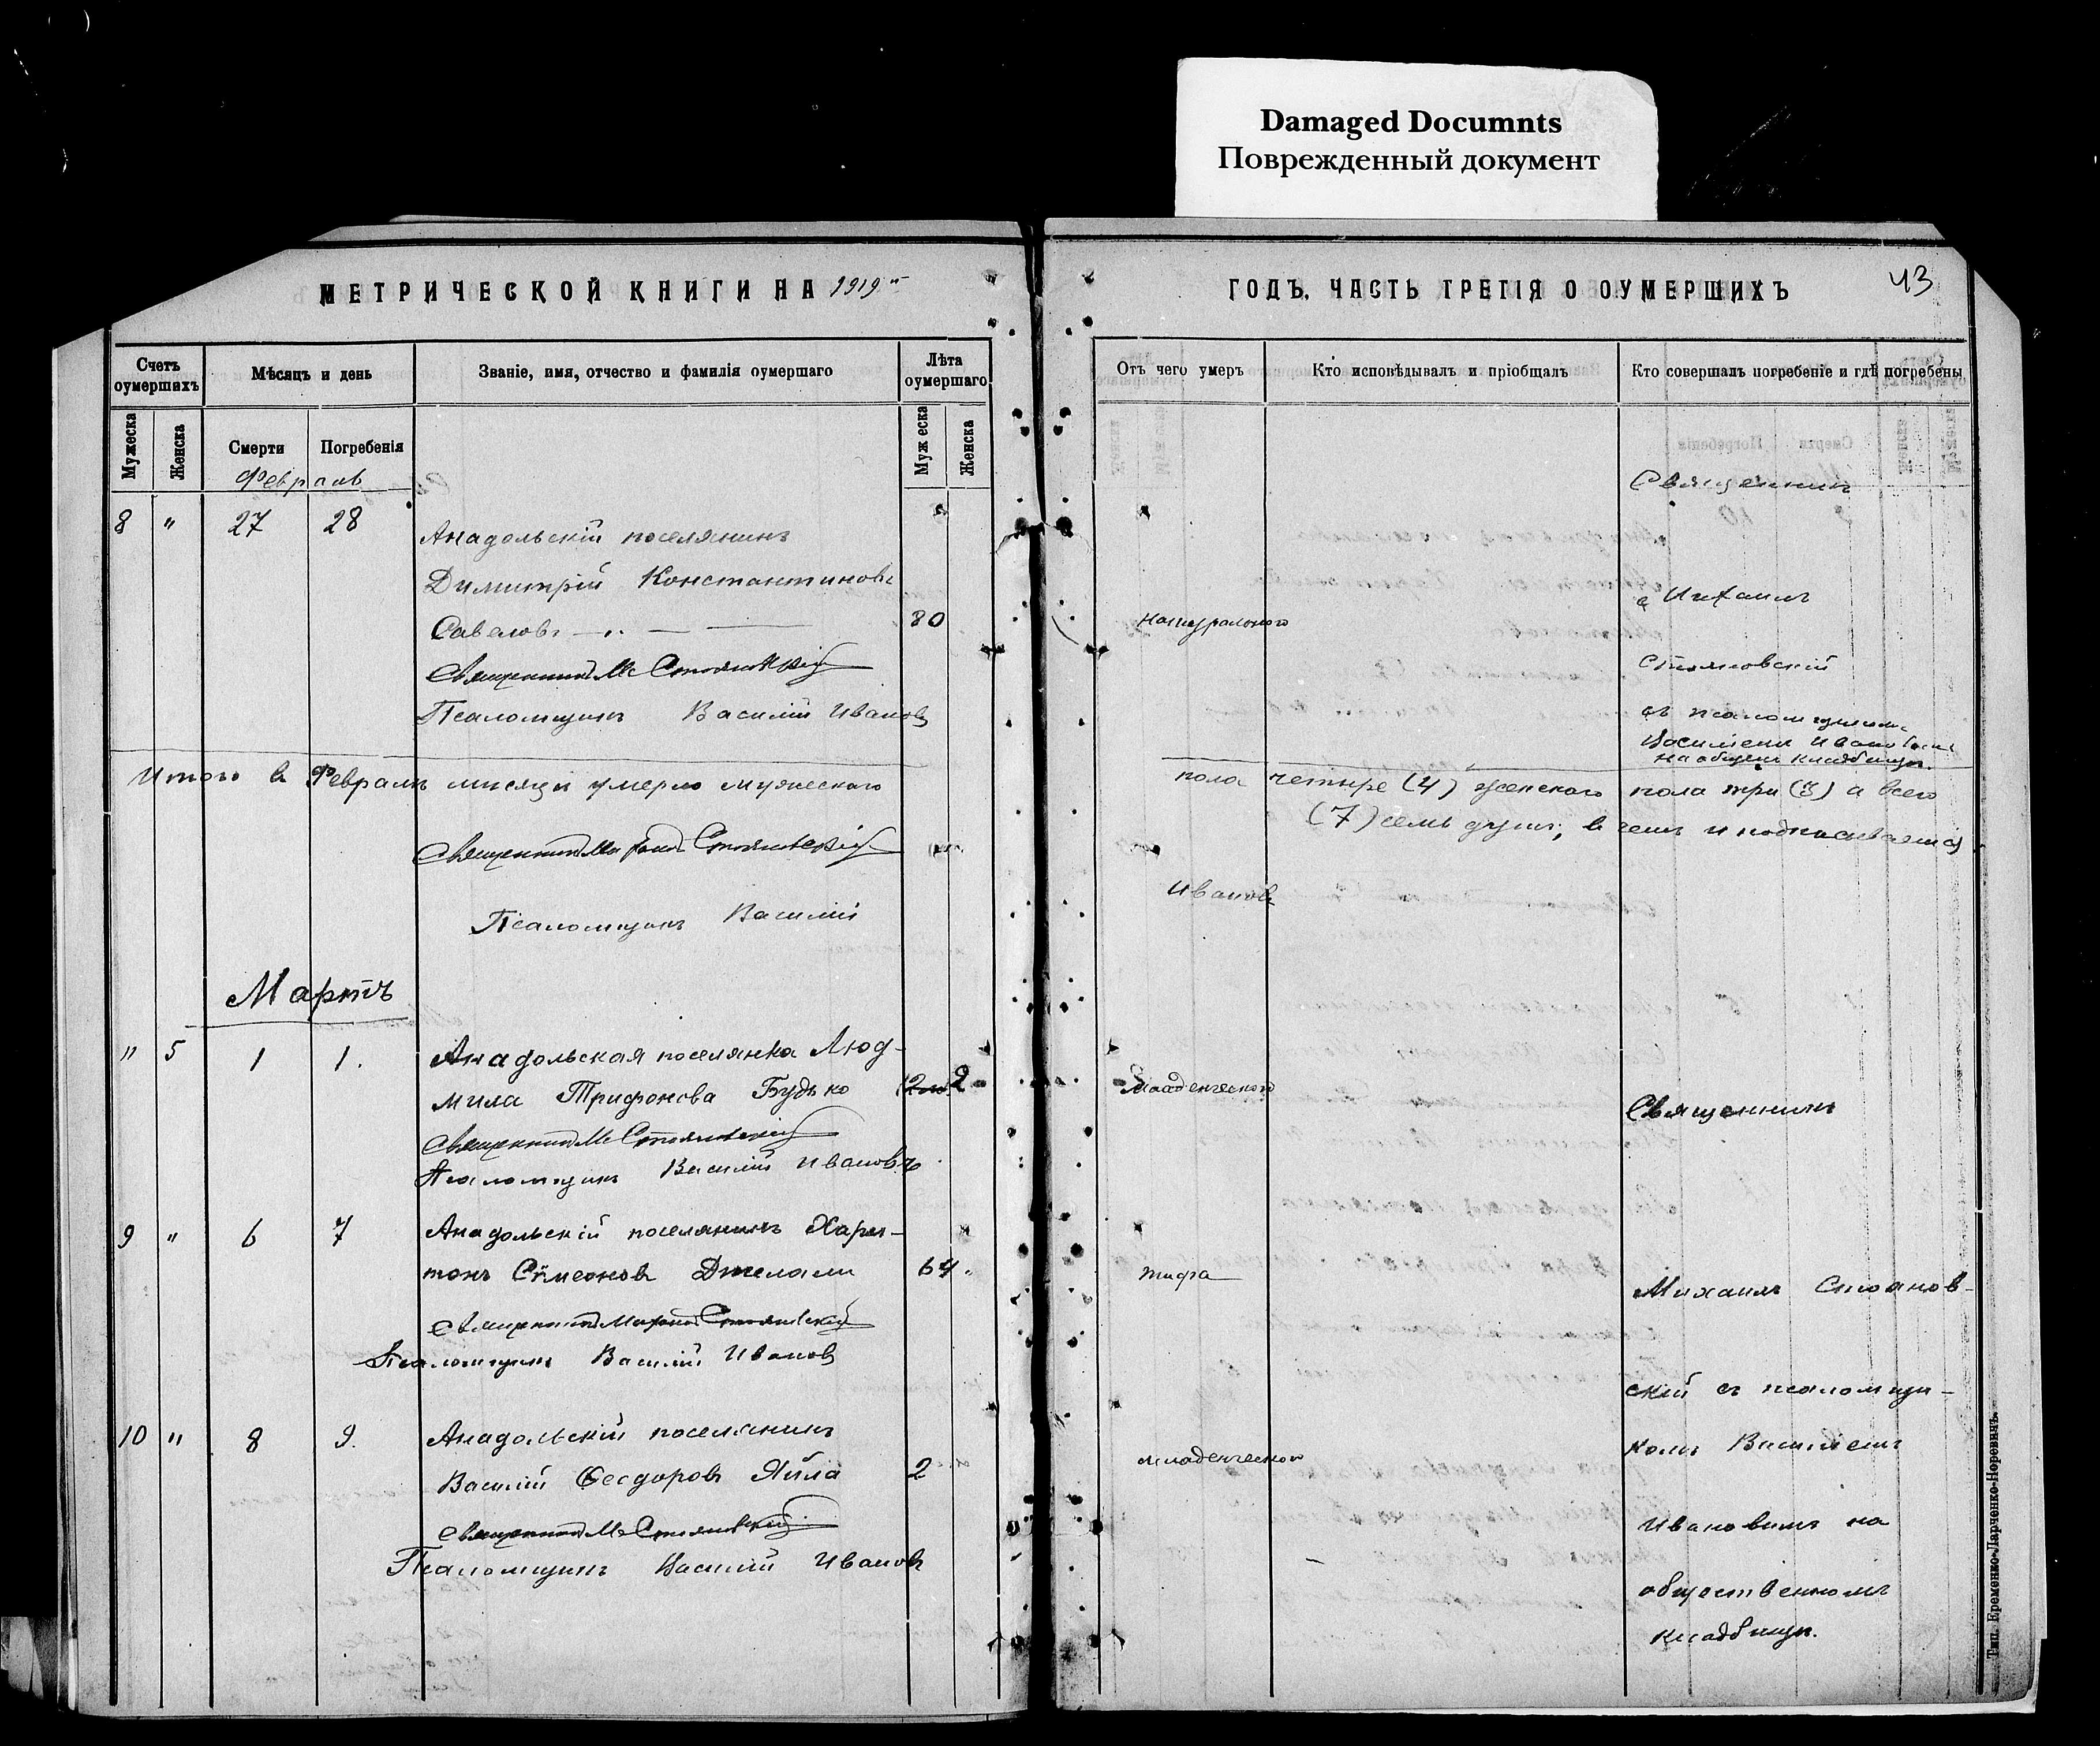 Damaged Documnts
Поврежденный документ
МЕТРИЧЕСКОЙ КНИГИ НА 1919
ГОДЪ. ЧАСТЬ ТРЕТІЯ О ОУМЕРШИХЪ
43
Счетъ оумершихъ
Мѣсяцъ и день
Званіе, имя, отчество и фамилія оумершаго
Лѣта оумершаго
Отъ чего умеръ
Кто исповѣдывалъ и пріобщалъ
Кто совершалъ погребеніе и гдѣ погребены
Мужеска
Женска
Смерти
Погребенія
Муж еска
Женска
Февраль
8 " 27 28
Анадольскій поселянинъ
Димитрій Константиновъ
Савеловъ
80
Натурального
Священникъ М Стояновскій
Псаломщикъ Василій Ивановъ
Священникъ
Михаилъ
Стояновскій
съ псаломщикомъ
Василіемъ Ивановымъ
на общем кладбищѣ.
Итого в Февралѣ мѣсяцѣ умерло мужескаго
пола четыре (4) женского пола три (3) а всего
(7) семь душъ, в чемъ и подписываемся
Священникъ Михаилъ Стояновскій
Псаломщикъ Василій
Ивановъ
Мартъ
" 5 1 1.
Анадольская поселянка Люд-
мила Трифонова Будько
2
Младенческого
Священникъ М Стояновскій
Псаломщикъ Василій Ивановъ
9 " 6 7
Анадольскій поселянинъ Хари-
тонъ Симеоновъ Джелали
64.
тифа
Священникъ Михаилъ Стояновскій
Псаломщикъ Василій Ивановъ
10 " 8 9.
Анадольскій поселянинъ
Василій Ѳеодоровъ Яйла
2
младенческой
Священникъ М Стояновскій
Псаломщикъ Василій Ивановъ
Священникъ
Михаилъ Стоянов-
скій съ псаломщи-
комъ Василіемъ
Ивановымъ на
общественномъ
кладбищѣ.
Тип. Еременко-Ларченко-Норевичъ.